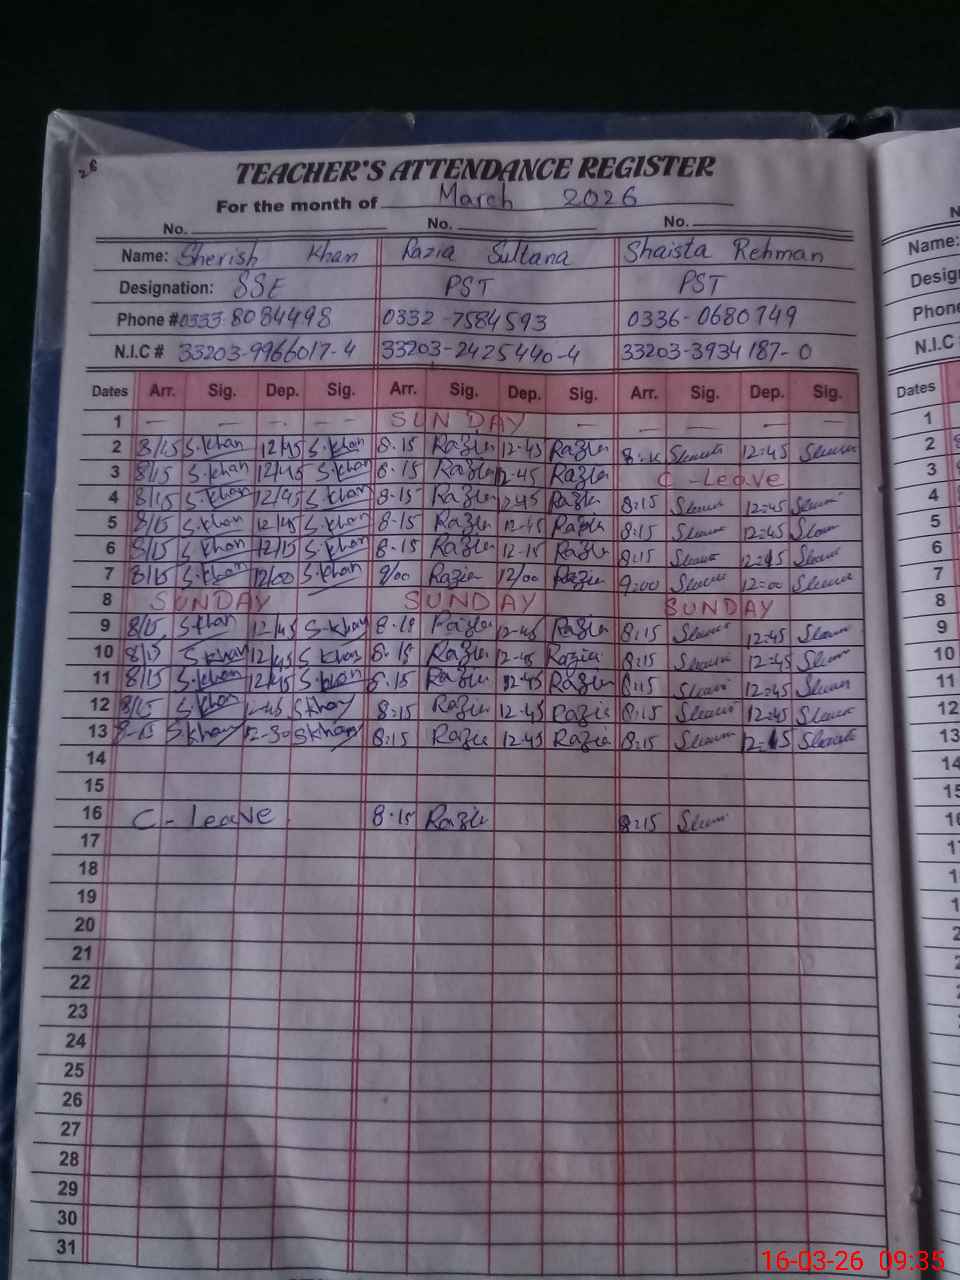 26
TEACHER'S ATTENDANCE REGISTER
For the month of March 2026
No. No. No.
Name: Sherish Khan Razia Sultana Shaista Rehman
Designation: SSE PST PST
Phone # 0333-8084498 0332-7584593 0336-0680749
N.I.C # 33203-9966017-4 33203-2425440-4 33203-3934187-0
Dates Arr. Sig. Dep. Sig. Arr. Sig. Dep. Sig. Arr. Sig. Dep. Sig.
1 — — — — SUNDAY — — — — —
2 8/15 S.khan 12/45 S.khan 8.15 Razia 12-45 Razia 12:45
3 8/15 S.khan 12/45 S.khan 8.15 Razia 12-45 Razia C-Leave
4 8/15 S.khan 12/45 S.khan 8-15 Razia 12-45 Razia 8:15 12:45
5 8/15 S.khan 12/45 S.khan 8-15 Razia 12-45 Razia 8:15 12:45
6 8/15 S.khan 12/15 S.khan 8.15 Razia 12-15 Razia 8:15
7 8/15 S.khan 12/00 S.khan 9/00 Razia 12/00 Razia 9:00 12:00
8 SUNDAY SUNDAY SUNDAY
9 8/15 S.khan 12/45 S.khan Razia 12-45 Razia 8:15 12:45
10 8/15 S.khan 12/45 S.khan Razia 12-45 Razia 8:15 12:45
11 8/15 S.khan 12/45 S.khan 8.15 Razia 12-45 Razia 8:15 12:45
12 8/15 S.khan 12-45 S.khan 8:15 Razia 12-45 Razia 8:15 12:45
13 8-15 S.khan 12-30 S.khan 8:15 Razia 12-45 Razia 8:15
14
15
16 C-leave 8.15 Razia 8:15
17
18
19
20
21
22
23
24
25
26
27
28
29
30
31
Name:
Designa
Phone
N.I.C
Dates
1
2
3
4
5
6
7
8
9
10
11
12
13
14
15
16
16-03-26 09:35